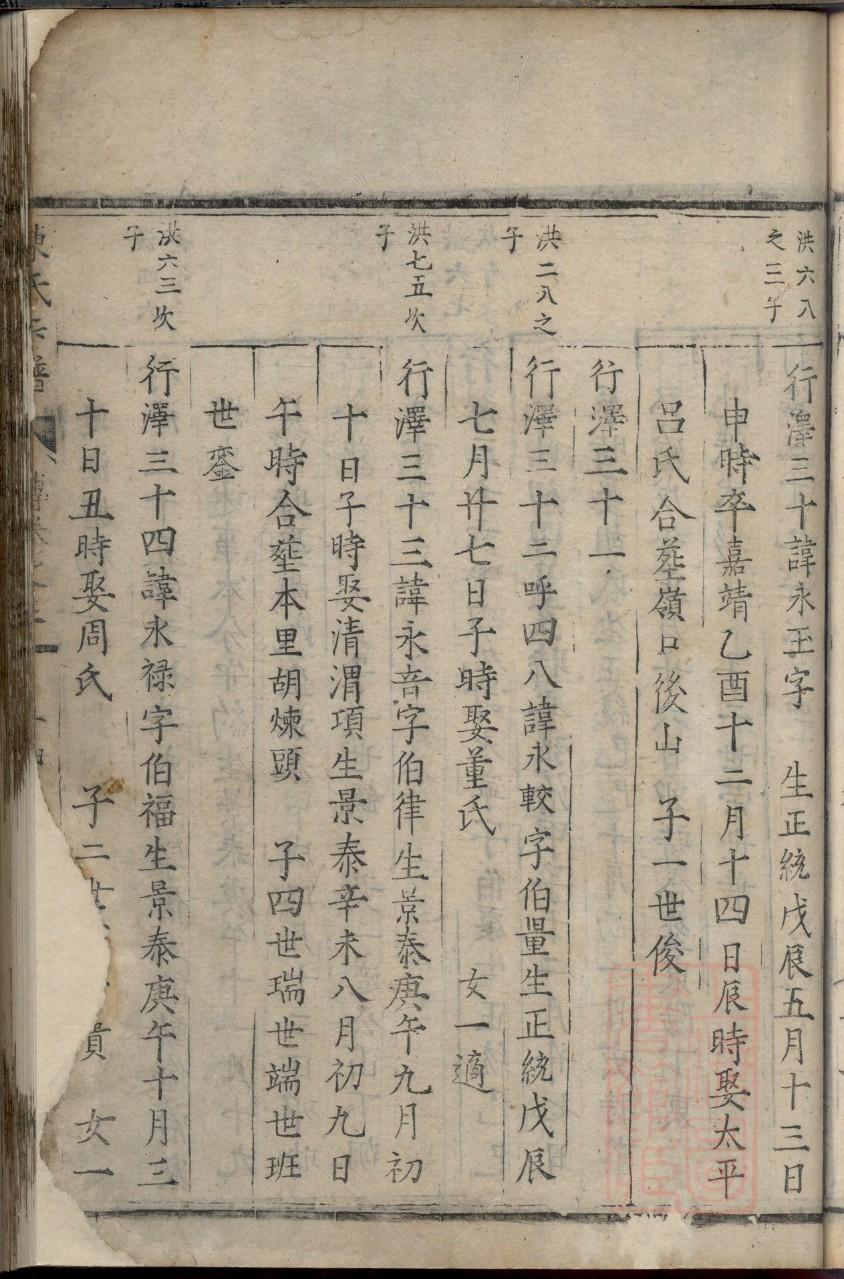 洪六八
之三子
行澤三十諱永玉字　生正統戊辰五月十三日
申時卒嘉靖乙酉十二月十四日辰時娶太平
呂氏合塟嶺口後山　子一世俊
行澤三十一
洪二八之
子
行澤三十二呼四八諱永較字伯量生正統戊辰
七月廿七日子時娶董氏　女一適
洪七五次
子
行澤三十三諱永音字伯律生景泰庚午九月初
十日子時娶清渭項生景泰辛未八月初九日
午時合塟本里胡煉頭　子四世瑞世端世班
世鑾
洪六三次
子
行澤三十四諱永禄字伯福生景泰庚午十月三
十日丑時娶周氏　子二世　女一
陳氏宗譜